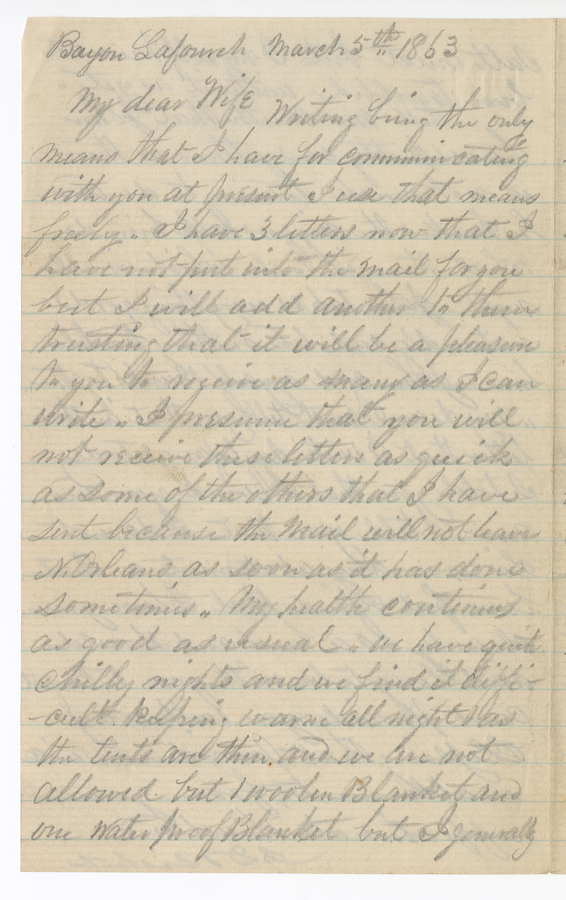 Bayou Lafourch March 5th 1863
My dear Wife Writing being the only
means that I have for communicating
with you at present I use that means
freely. I have 3 letters now that I
have not put into the mail for you
but I will add another to them
trusting that it will be a pleasure
to you to receive as many as I can
write. I presume that you will
not receive these letters as quick
as some of the others that I have
sent because the Mail will not leave
N. Orleans as soon as it has done
sometimes. My health continues
as good as usual. we have quite
chilly nights and we find it diffi-
-cult keeping warm all night as
the tents are thin and we are not
allowed but 1 woolen Blanket and
one Water proof Blanket but I generally